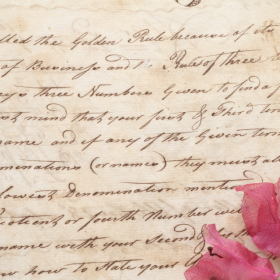 lled the Golden Rule because of
of Business and Rule of three
three Numbers Given to find a f
mind that your first & Third
name and if any of the Given
nominations (or names) they must
Lowest Denomination
or fourth Number
name with your Second
how to State your